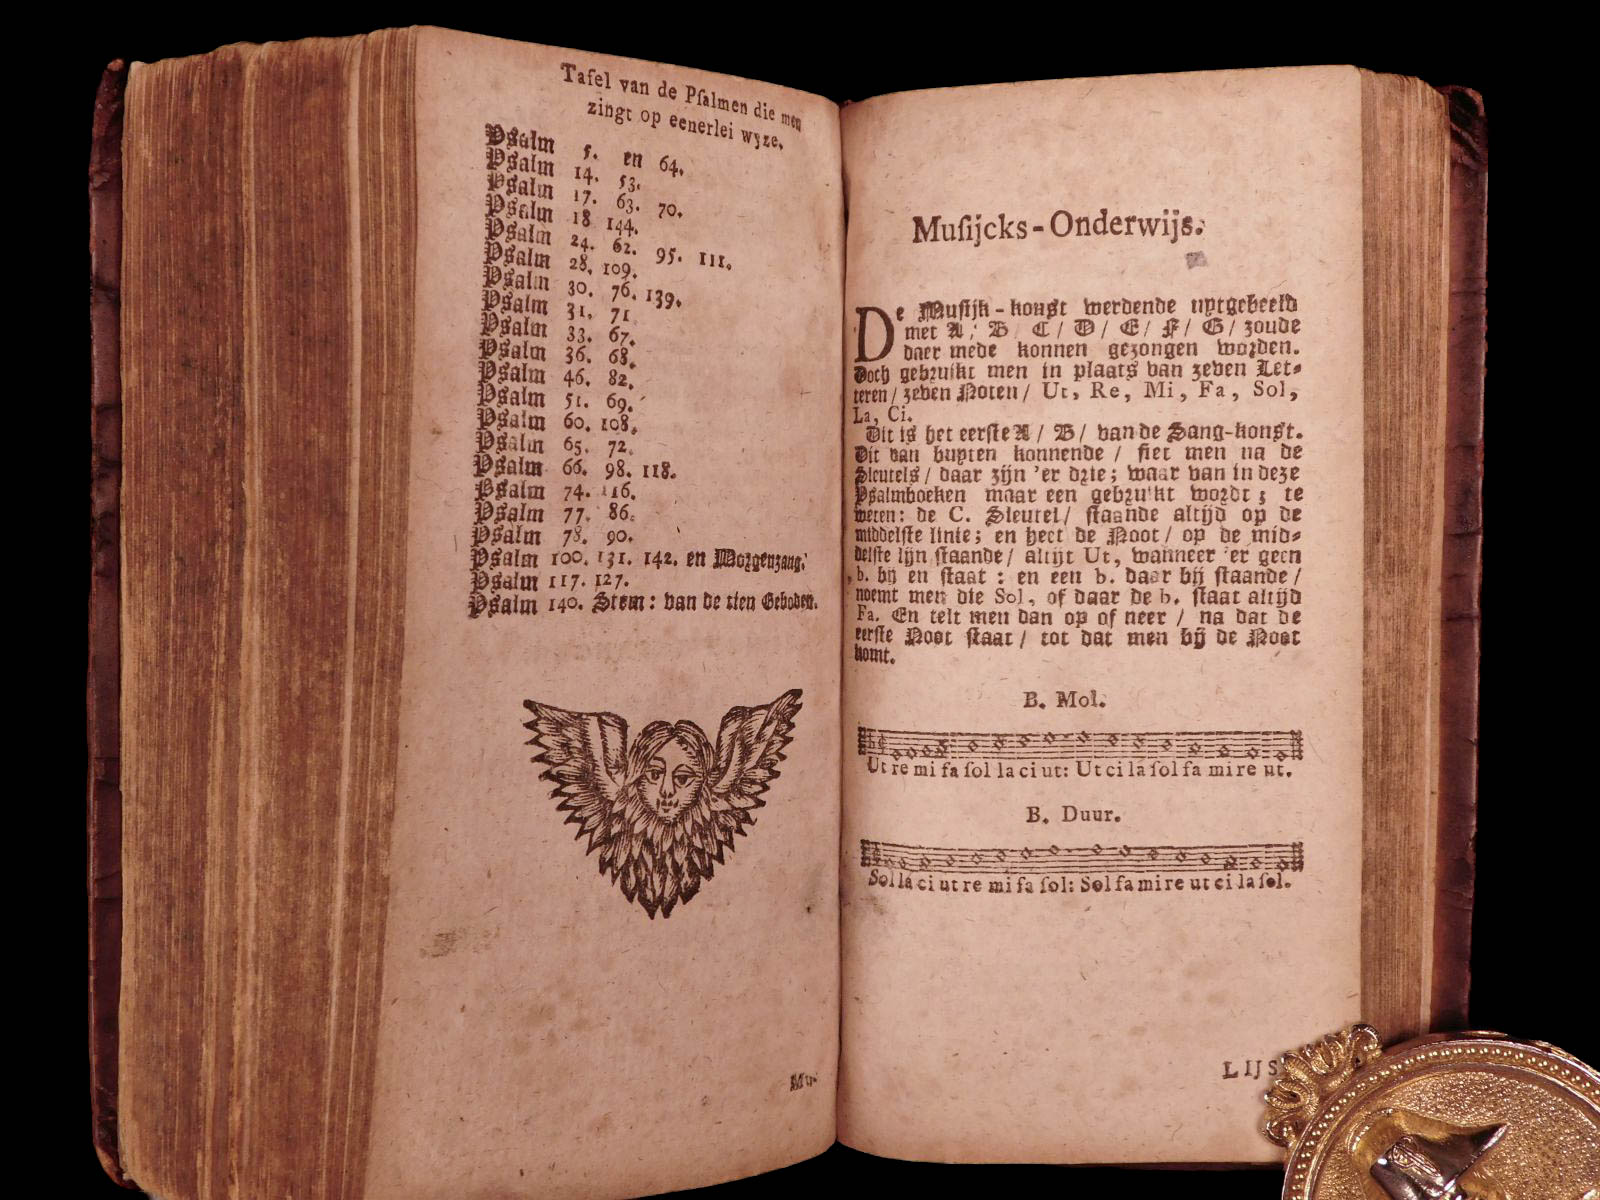 Tafel van de Pſalmen die men
zingt op eenerlei wyze.
Pſalm 5. en 64.
Pſalm 14. 53.
Pſalm 17. 63. 70.
Pſalm 18 144.
Pſalm 24. 62. 95. 111.
Pſalm 28. 109.
Pſalm 30. 76. 139.
Pſalm 31. 71
Pſalm 33. 67.
Pſalm 36. 68.
Pſalm 46. 82.
Pſalm 51. 69.
Pſalm 60. 108.
Pſalm 65. 72.
Pſalm 66. 98. 118.
Pſalm 74. 116.
Pſalm 77. 86.
Pſalm 78. 90.
Pſalm 100. 131. 142. en Morgenzang.
Pſalm 117. 127.
Pſalm 140. Stem: van de tien Geboden.
Mu-
Muſijcks-Onderwijs.
De Muſijk-konſt werdende uytgebeeld
met A/ B/ C/ D/ E/ F/ G/ zoude
daer mede konnen gezongen worden.
Doch gebruikt men in plaats van zeven Let-
teren/ zeven Noten/ Ut, Re, Mi, Fa, Sol,
La, Ci.
Dit is het eerſte A/ B/ van de Sang-konſt.
Dit van buyten konnende/ ſiet men na de
Sleutels/ daar zijn 'er drie; waar van in deze
Pſalmboeken maar een gebruikt wordt; te
weten: de C. Sleutel/ ſtaande altijd op de
middelſte linie; en heet de Noot/ op de mid-
delſte lijn ſtaande/ altijt Ut, wanneer 'er geen
b. bij en ſtaat: en een b. daar bij ſtaande/
noemt men die Sol, of daar de b. ſtaat altijd
Fa. En telt men dan op of neer/ na dat de
eerſte Noot ſtaat/ tot dat men bij de Noot
komt.
B. Mol.
Ut re mi fa ſol la ci ut: Ut ci la ſol fa mi re ut.
B. Duur.
Sol la ci ut re mi fa ſol: Sol fa mi re ut ci la ſol.
LIJS